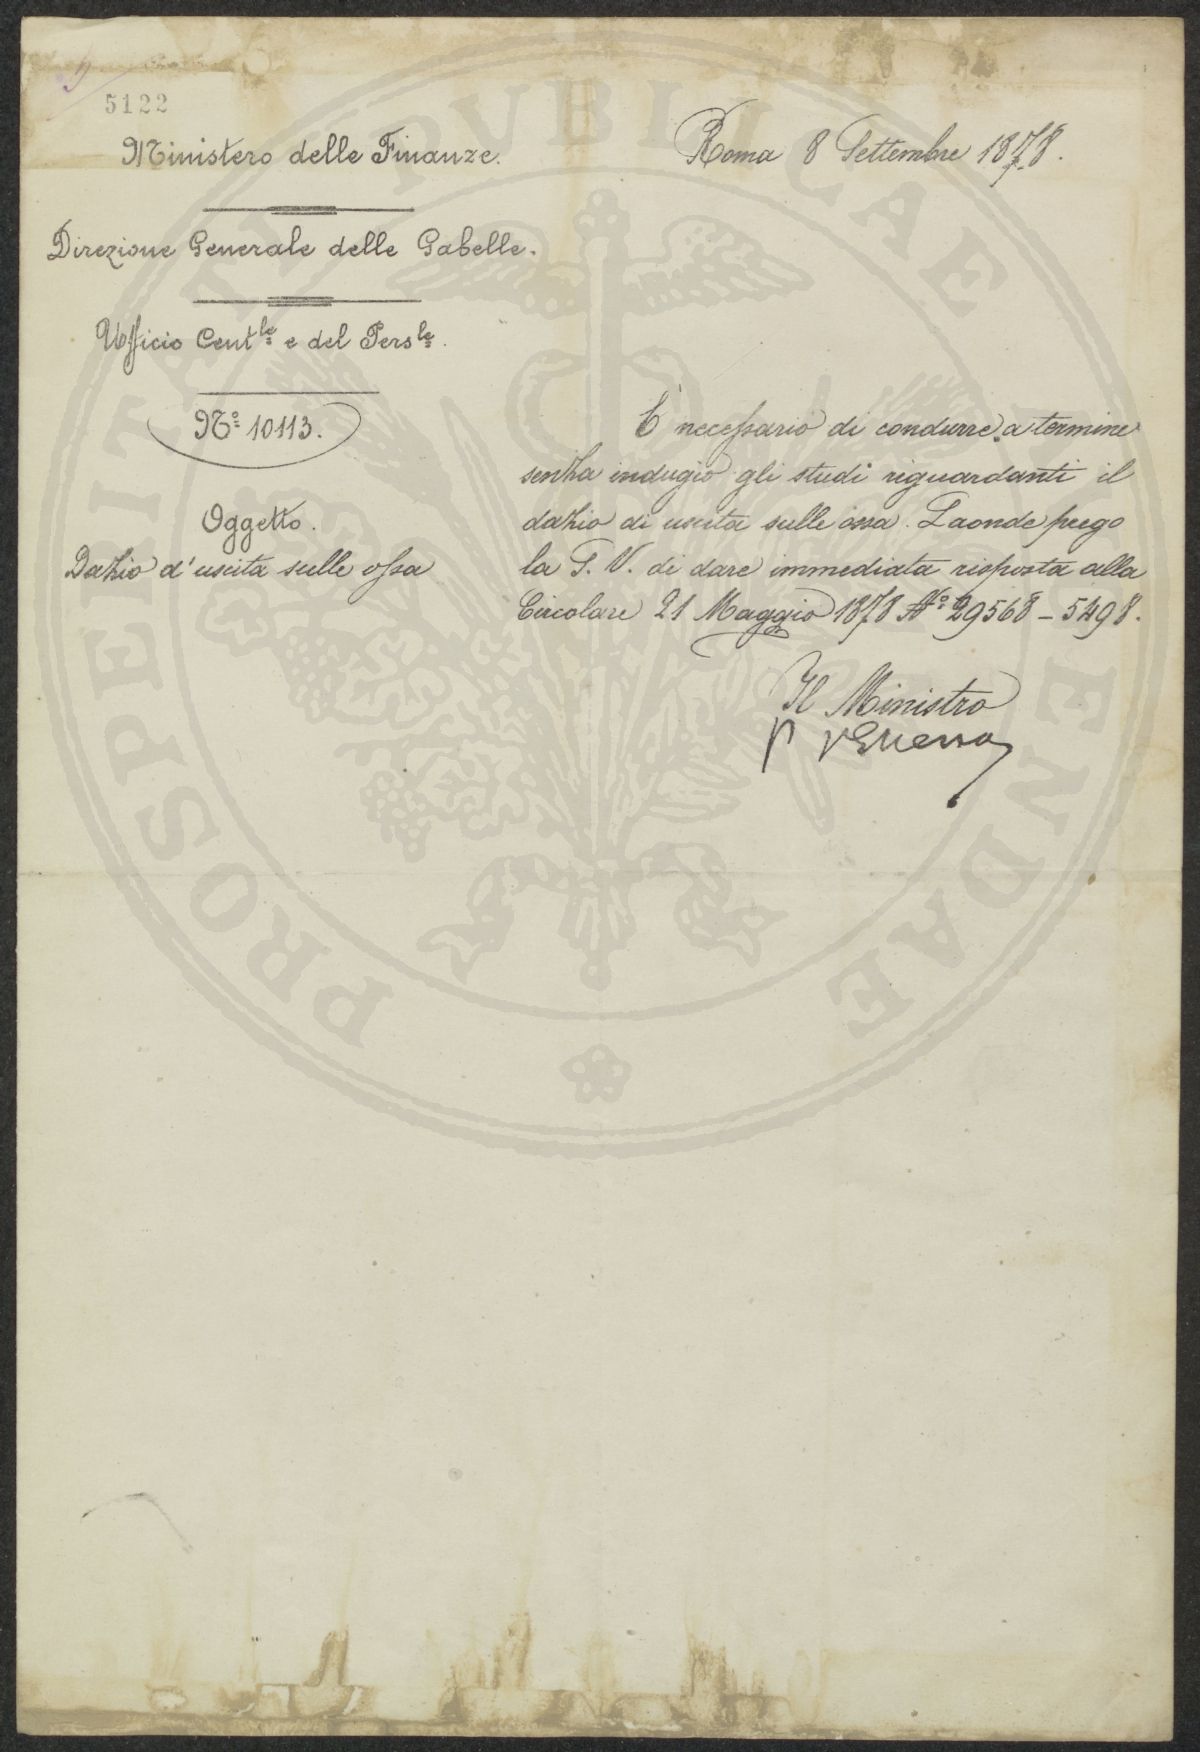 5122
Ministero delle Finanze.
Roma 8 Settembre 1878.
Direzione Generale delle Gabelle.
Ufficio Centle e del Persle.
No 10113.
Oggetto.
Dazio d'uscita sulle ossa
È necessario di condurre a termine
senza indugio gli studi riguardanti il
dazio di uscita sulle ossa. Laonde prego
la S. V. di dare immediata risposta alla
Circolare 21 Maggio 1878 No 29568 – 5498.
Il Ministro
PROSPERITATI PVBLICAE AVGENDAE